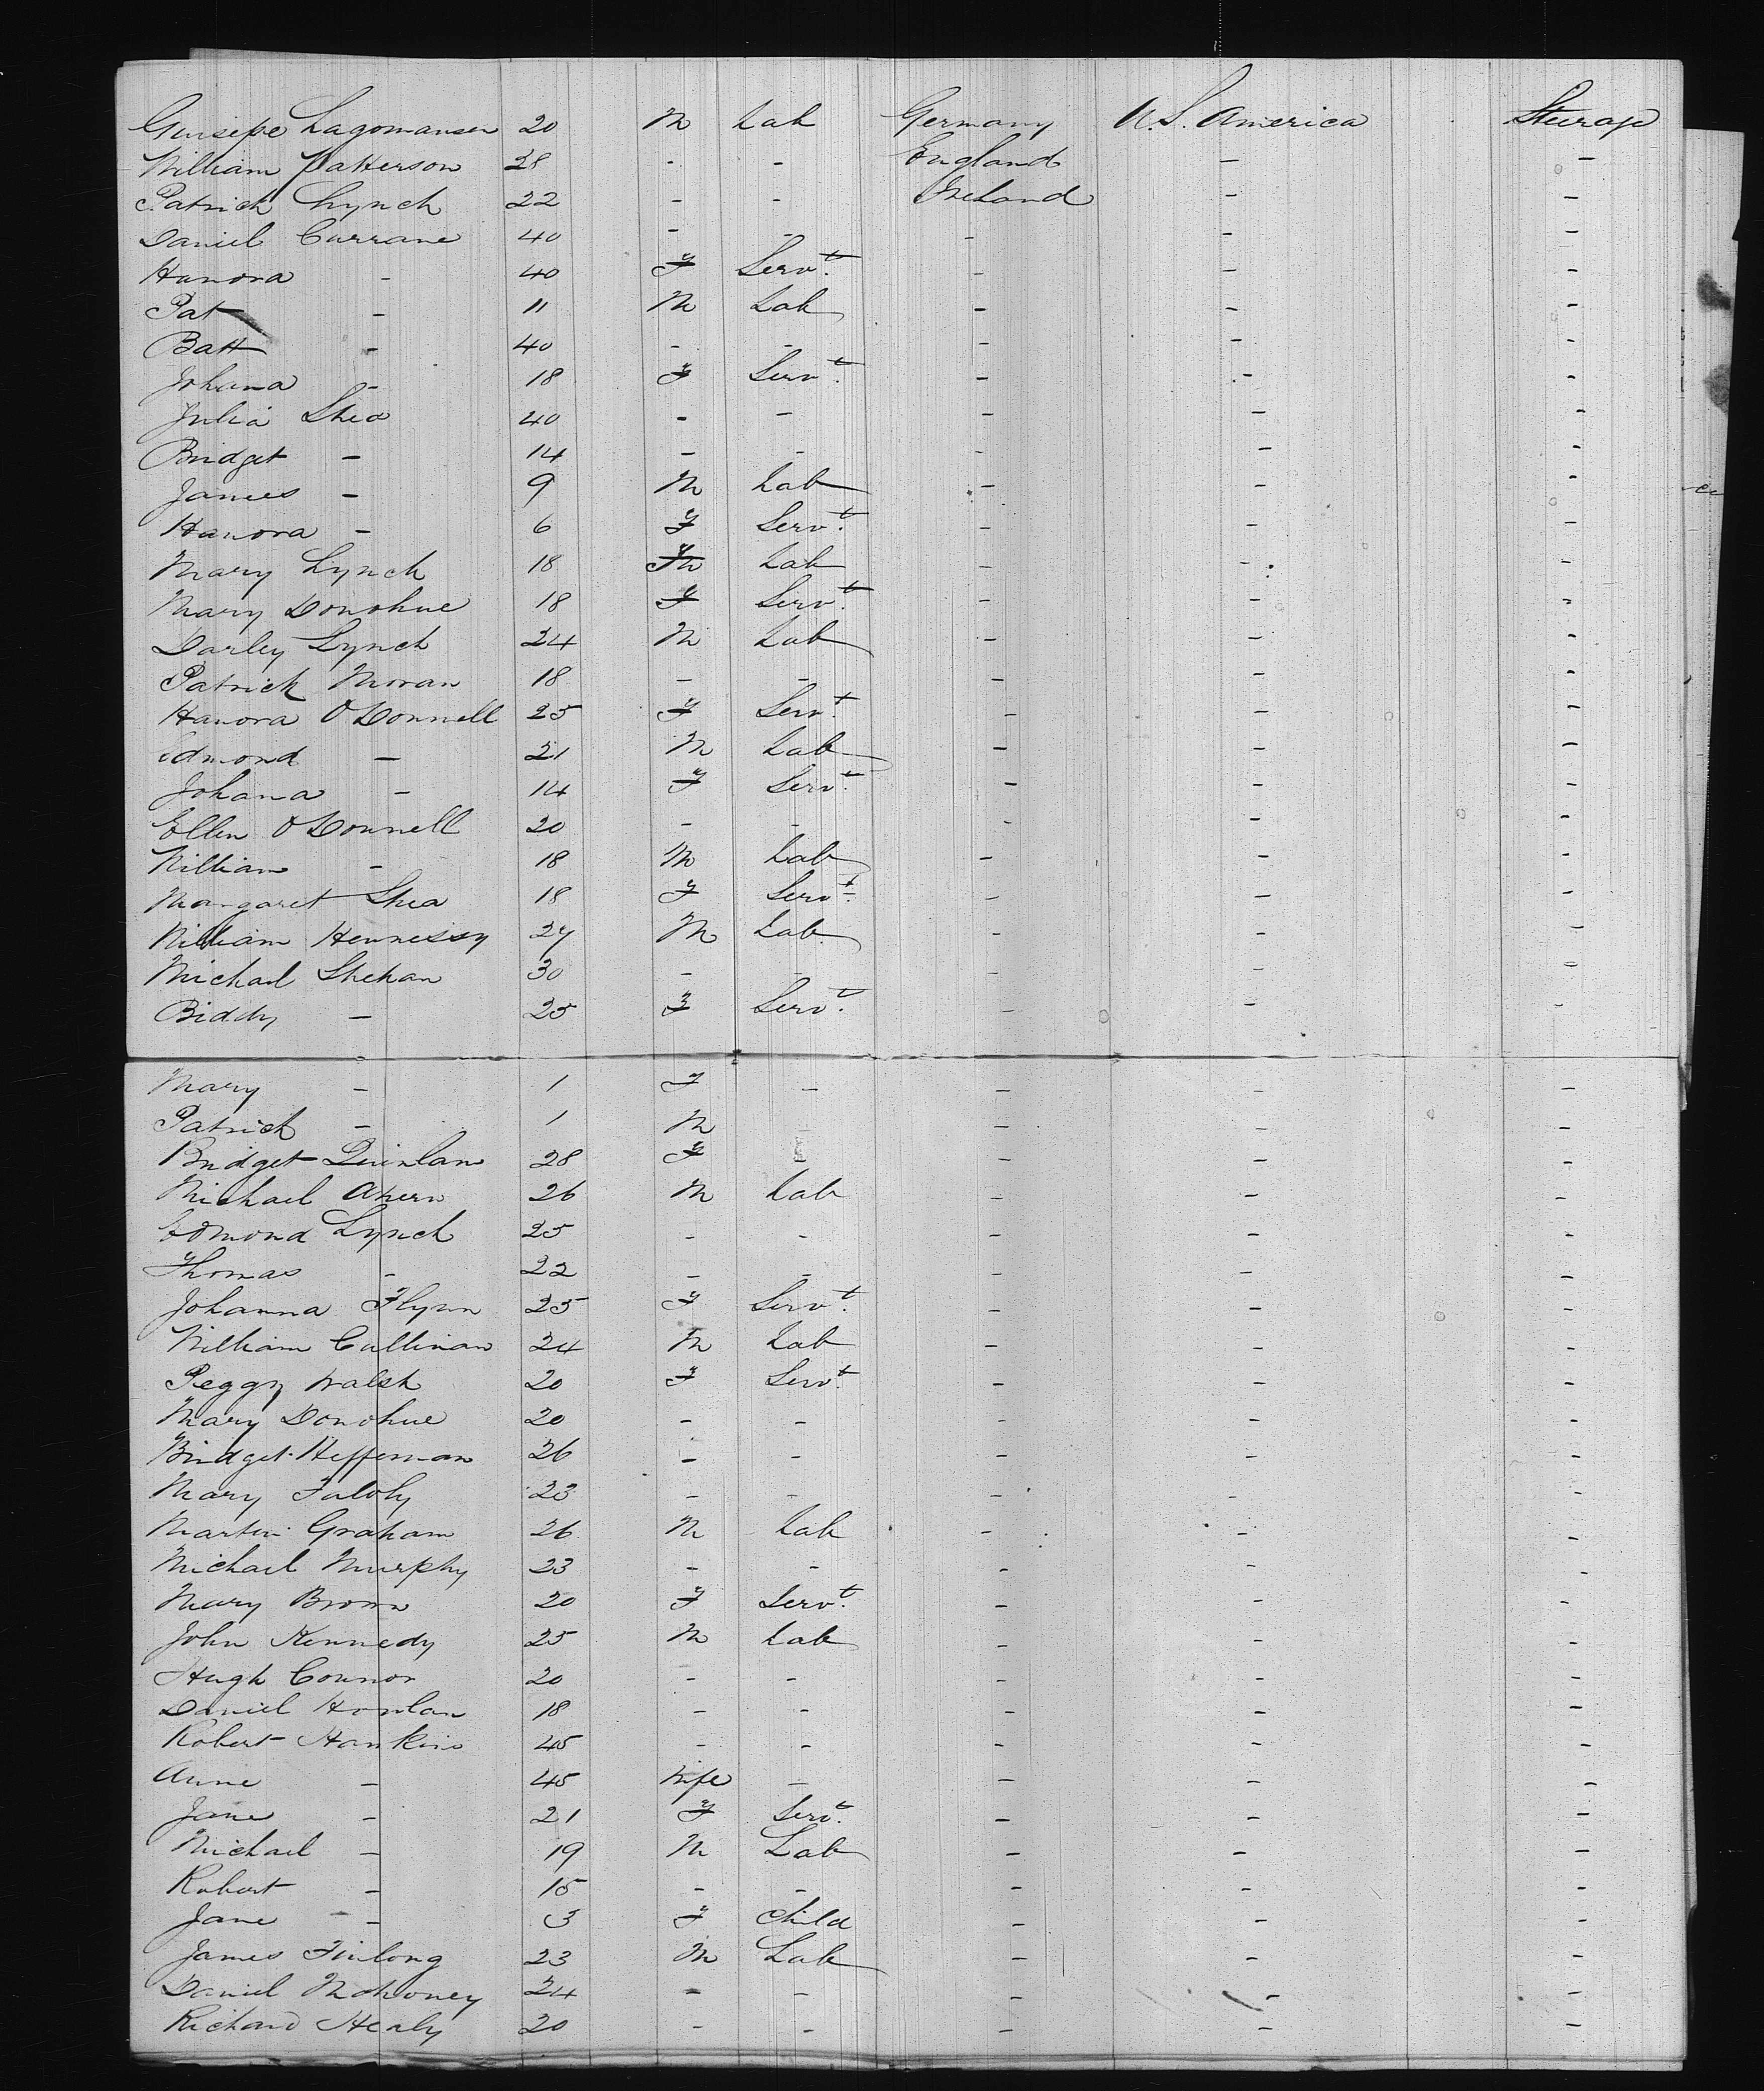 Guisepe Lagomanson 20 M Lab Germany U.S. America Steerage
William Patterson 28 - - England - -
Patrick Lynch 22 - - Ireland - -
Daniel Currane 40 - - - - -
Hanora - 40 F Servt. - - -
Pat - 11 M Lab - - -
Batt - 40 - - - - -
Johana - 18 F Servt. - - -
Julia Shea 40 - - - - -
Bridget - 14 - - - - -
James - 9 M Lab - - -
Hanora - 6 F Servt. - - -
Mary Lynch 18 F Lab - - -
Mary Donohue 18 F Servt. - - -
Darley Lynch 24 M Lab - - -
Patrick Moran 18 - - - - -
Hanora O'Donnell 25 F Servt. - - -
Edmond - 21 M Lab - - -
Johana - 14 F Servt. - - -
Ellen O'Donnell 20 - - - - -
William - 18 M Lab - - -
Margaret Shea 18 F Servt. - - -
William Hennessy 27 M Lab - - -
Michael Shehan 30 - - - - -
Biddy - 25 F Servt. - - -
Mary - 1 F - - - -
Patrick - 1 M - - - -
Bridget Quinlan 28 F - - -
Michael Ahern 26 M Lab - - -
Edmond Lynch 25 - - - - -
Thomas - 22 - - - - -
Johanna Flynn 25 F Servt. - - -
William Cullinan 24 M Lab - - -
Peggy Walsh 20 F Servt. - - -
Mary Donohue 20 - - - - -
Bridget Heffernan 26 - - - - -
Mary 23 - - - - -
Martin Graham 26 M Lab - - -
Michael Murphy 23 - - - - -
Mary Brown 20 F Servt. - - -
John Kennedy 25 M Lab - - -
Hugh Connor 20 - - - - -
Daniel Howlan 18 - - - - -
Robert Hankins 45 - - - - -
Anne - 45 Wife - - - -
Jane - 21 F Servt. - - -
Michael - 19 M Lab - - -
Robert - 15 - - - - -
Jane - 3 F Child - - -
James Finlong 23 M Lab - - -
Daniel Mahoney 24 - - - - -
Richard Healy 20 - - - - -